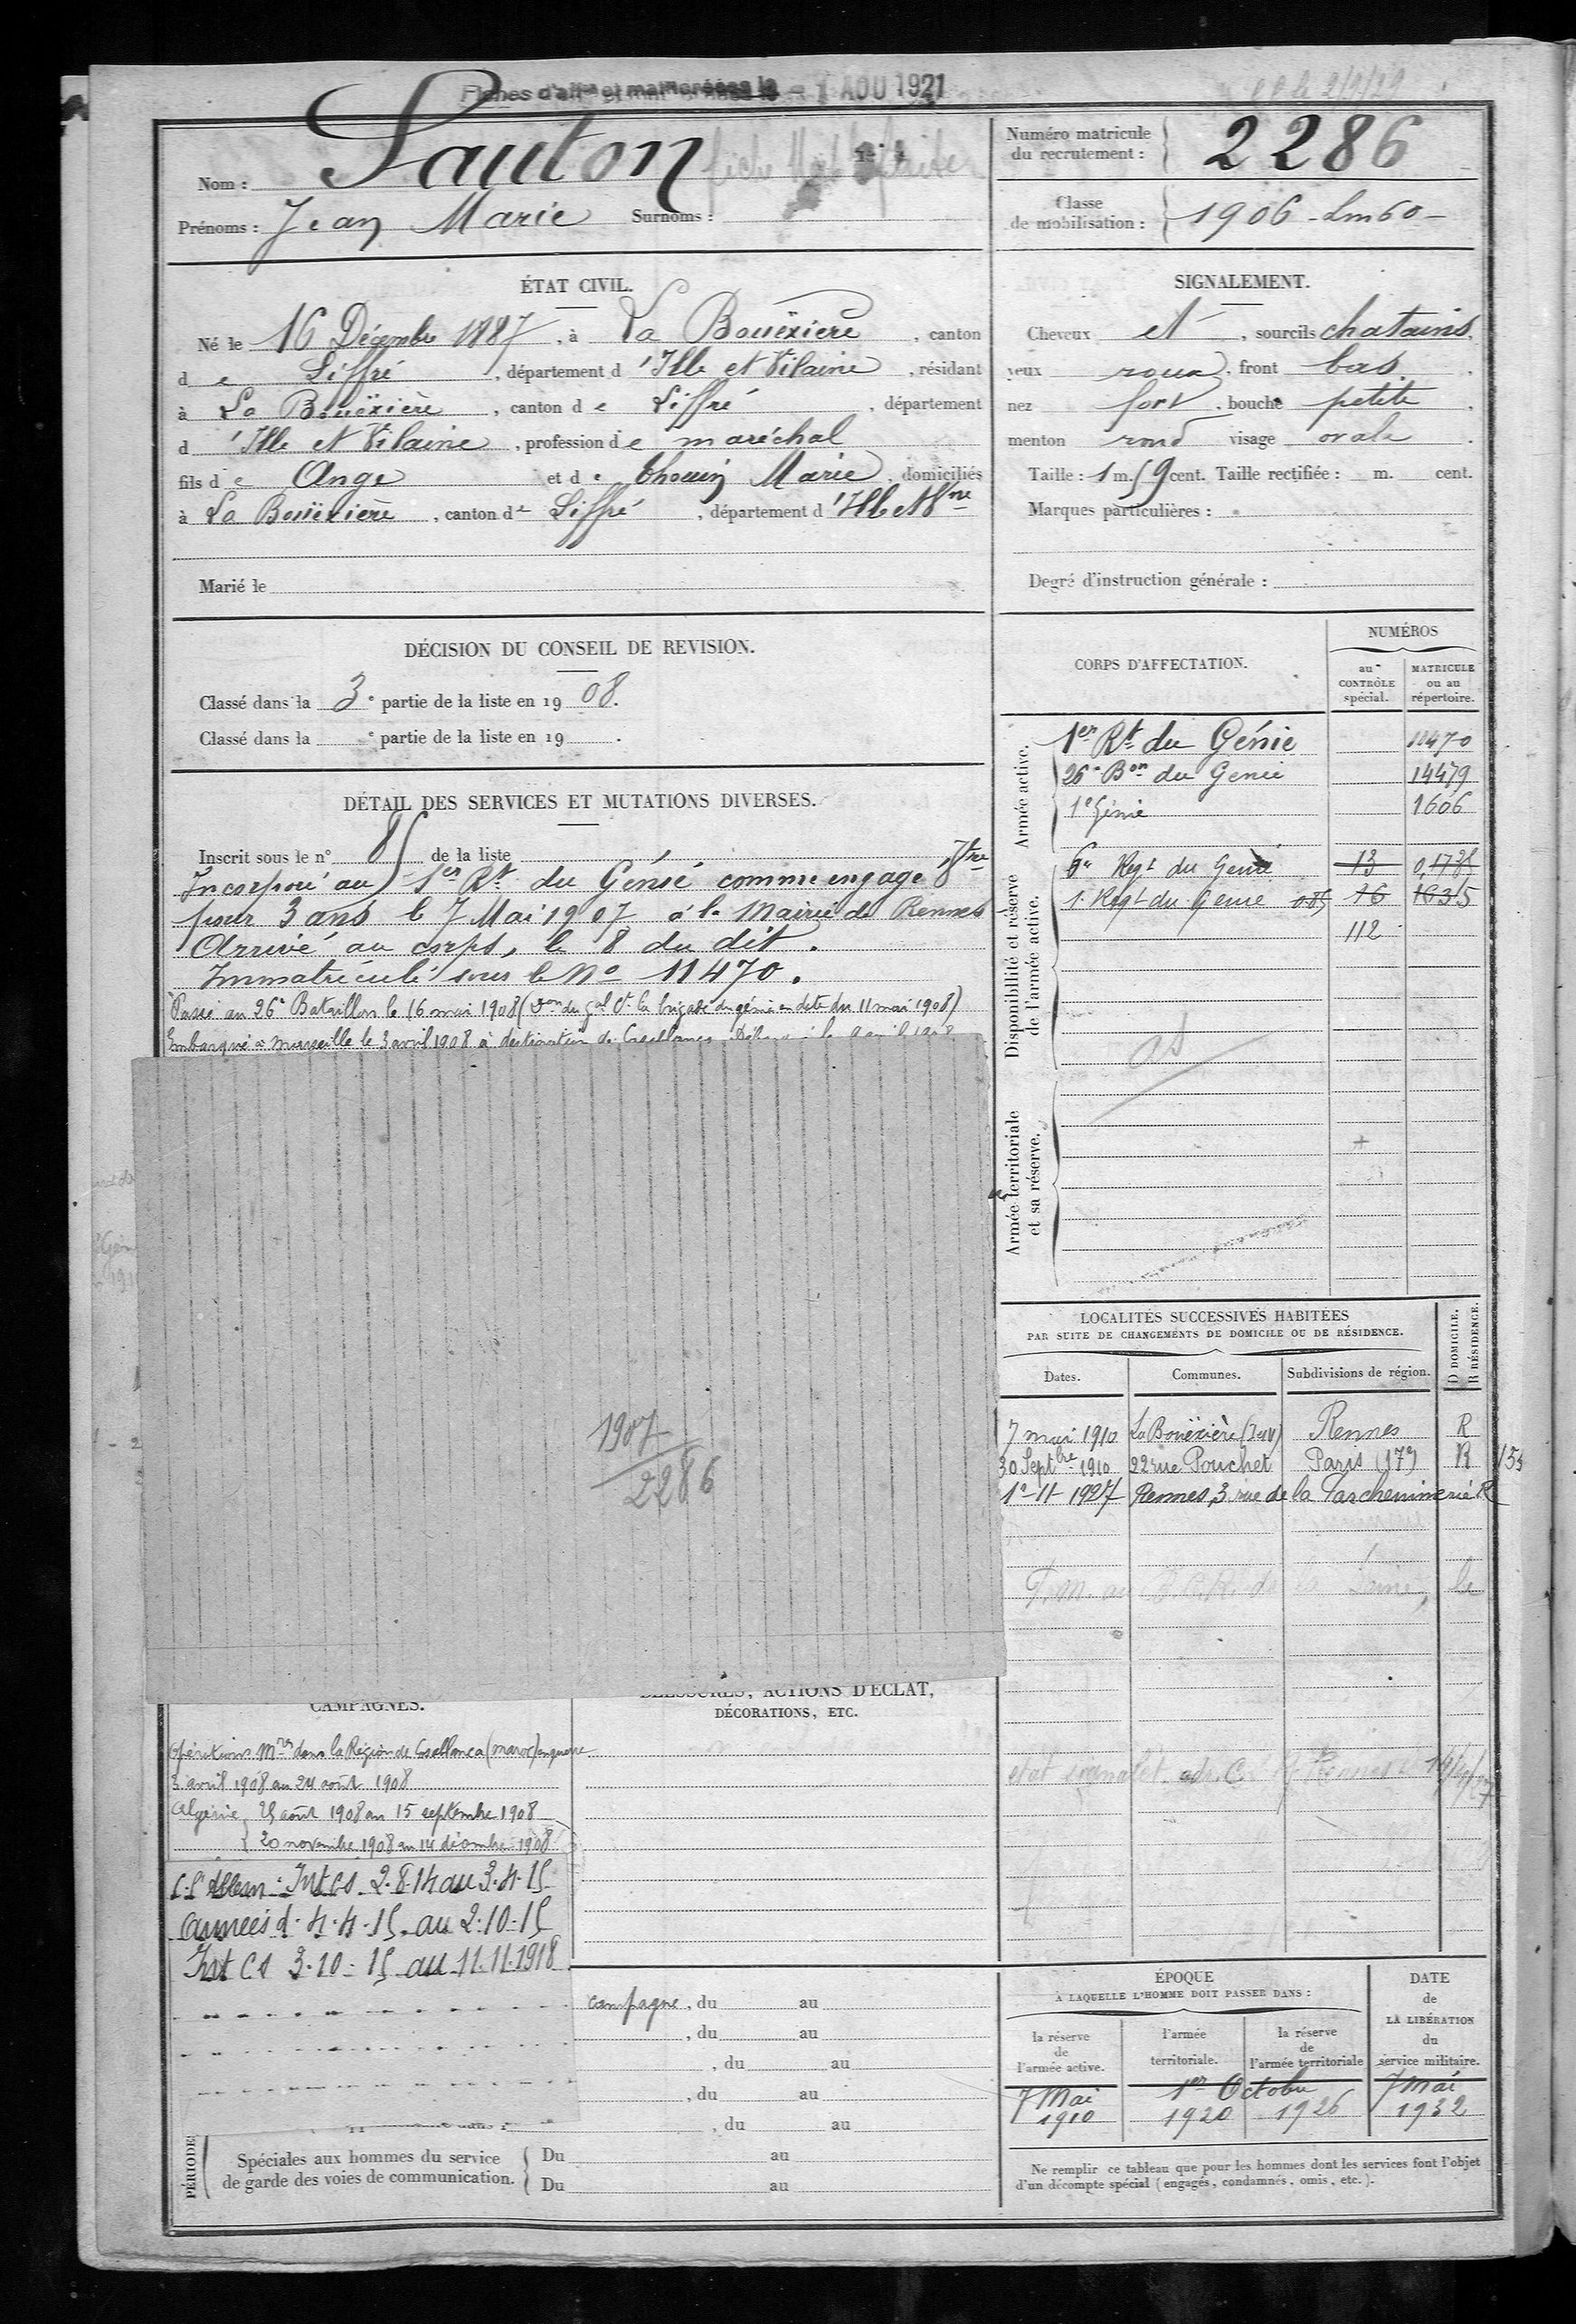 Fiches d'aff^on et mat^les créées le - 1 AOU 1921
Nom : Sauton
Prénoms : Jean Marie Surnoms :
Numéro matricule du recrutement : 2286
Classe de mobilisation : 1906 - Lm60 -
ÉTAT CIVIL.
Né le 16 Décembre 1887, à La Bouëxière, canton
de Liffré, département d'Ille et Vilaine, résidant
à La Bouëxière, canton de Liffré, département
d'Ille et Vilaine, profession de maréchal
fils de Ange et de Thouin Marie, domiciliés
à La Bouëxière, canton de Liffré, département d'Ille et Vne
Marié le
SIGNALEMENT.
Cheveux et, sourcils chatains,
yeux roux, front bas,
nez fort, bouche petite,
menton rond visage ovale.
Taille : 1 m. 59 cent. Taille rectifiée : m. cent.
Marques particulières :
Degré d'instruction générale :
DÉCISION DU CONSEIL DE REVISION.
Classé dans la 3e partie de la liste en 1908.
Classé dans la e partie de la liste en 19 .
DÉTAIL DES SERVICES ET MUTATIONS DIVERSES.
Inscrit sous le n° 85 de la liste
Incorporé au 1er Rt du Génie comme engagé Vtre
pour 3 ans le 7 Mai 1907 à la Mairie de Rennes
Arrivé au corps, le 8 du dit.
Immatriculé sous le No 11470.
Passé au 26e Bataillon le 16 mai 1908 (Don du Gal Ct la brigade du génie en date du 11 mai 1908)
Embarqué à Marseille le 3 avril 1908 à destination de Casablanca. le 9 avril 1908
1907
2286
CORPS D'AFFECTATION.
NUMÉROS
au CONTRÔLE spécial.
MATRICULE ou au répertoire.
Armée active.
1er Rt du Génie 11470
26e Bon du Génie 14479
1e Génie 1606
Disponibilité et réserve de l'armée active.
6e Regt du Genie 13 0,1738
1. Regt du Genie 085 16 1635
112
Armée territoriale et sa réserve.
LOCALITÉS SUCCESSIVES HABITÉES
PAR SUITE DE CHANGEMENTS DE DOMICILE OU DE RÉSIDENCE.
Dates. Communes. Subdivisions de région. D DOMICILE. R RÉSIDENCE.
7 mai 1910 La Bouëxière (I&V) Rennes R
30 Septbre 1910 22 rue Pouchet Paris (17e) R 153
1e-11-1927 Rennes, 3 rue de la Parcheminerie R
CAMPAGNES.
Opérations Mres dans la Région de Casablanca (maroc) en guerre
3 avril 1908 au 24 août 1908
Algérie { 25 août 1908 au 15 septembre 1908
{ 20 novembre 1908 au 14 décembre 1908
C. C. Allem : Int CS 2.8.14 au 3.4.15
Armées d. 4.4.15 au 2.10.15
Int CS 3.10.15 au 11.11.1918
BLESSURES, ACTIONS D'ÉCLAT,
DÉCORATIONS, ETC.
campagne, du au
, du au
, du au
, du au
, du au
PÉRIODE
Spéciales aux hommes du service de garde des voies de communication. { Du au
Du au
ÉPOQUE
À LAQUELLE L'HOMME DOIT PASSER DANS :
la réserve de l'armée active.
l'armée territoriale.
la réserve de l'armée territoriale
DATE de LA LIBÉRATION du service militaire.
7 Mai 1910
1er Octobre
1920 1926
7 Mai 1932
Ne remplir ce tableau que pour les hommes dont les services font l'objet
d'un décompte spécial (engagés, condamnés, omis, etc.).